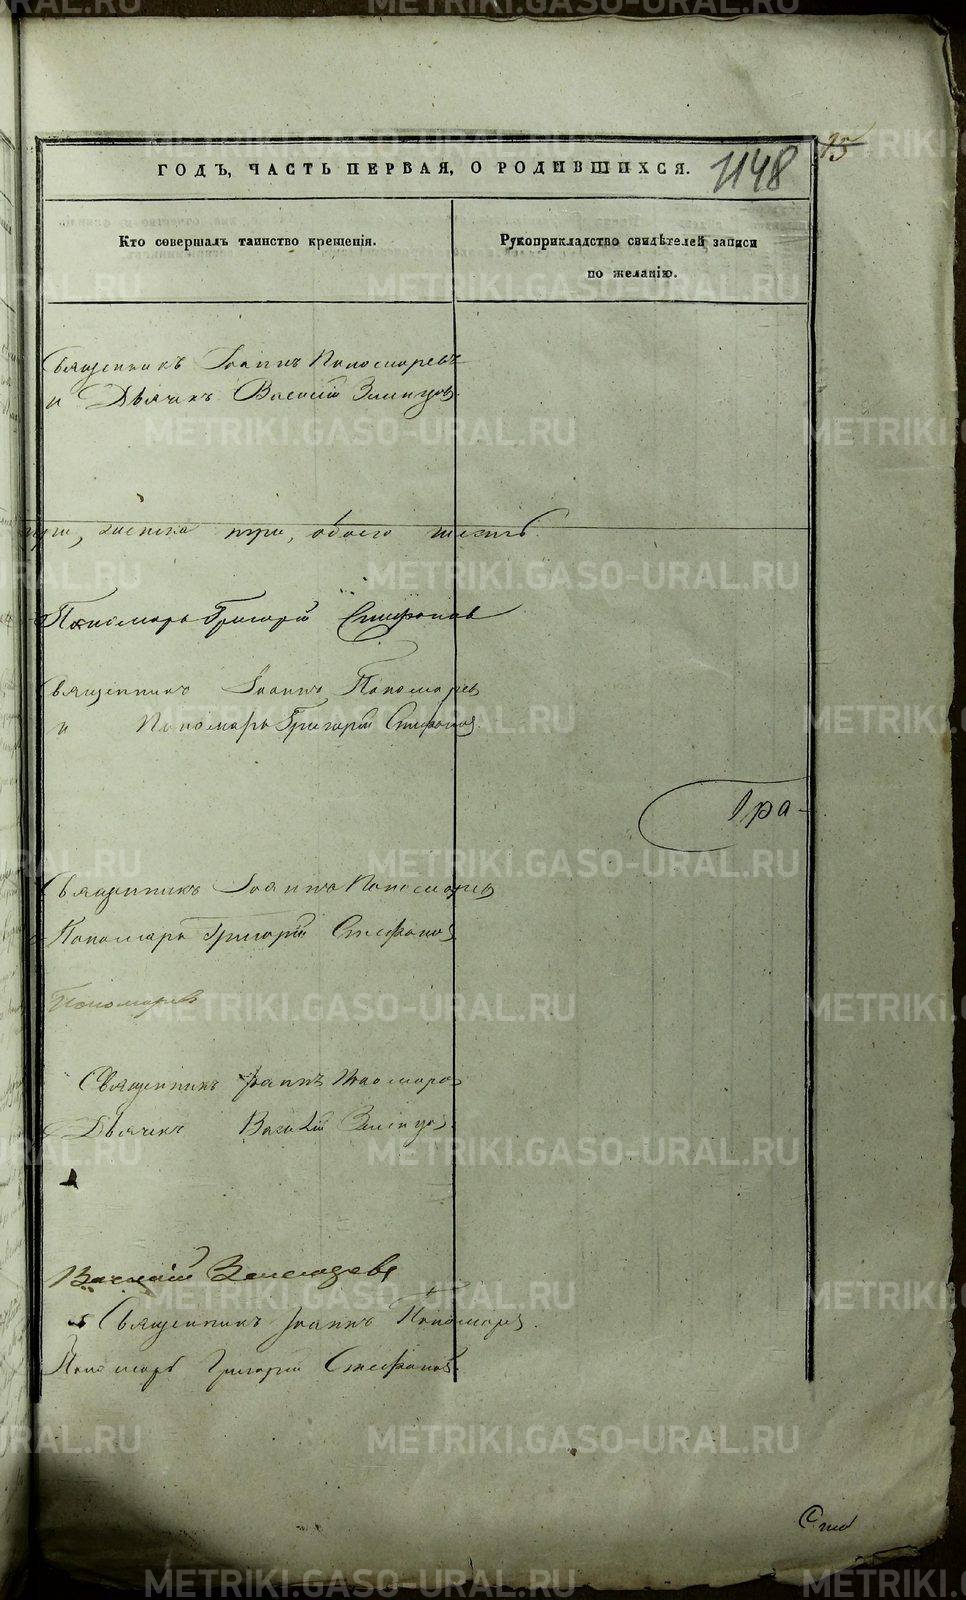 ГОДЪ, ЧАСТЬ ПЕРВАЯ, О РОДИВШИХСЯ.
1148
75
Кто совершалъ таинство крещенія.
Рукоприкладство свидѣтелей записи
по желанію.
Священникъ Іоаннъ Пономаревъ
и Дьячекъ Василій Зеленцов
три, женска три, обоего шесть.
Пономарь Григорій Стефанов
Священникъ Іоаннъ Пономарев
и Пономарь Григорій Стефанов.
Гра-
Священникъ Іоаннъ Пономарев
Пономарь Григорій Стефанов
Пономарев
Священникъ Іоаннъ Пономарев
Дьячекъ Василій Зеленцов.
Василій Зеленцовъ
Священникъ Іоаннъ Пономарев.
Пономарь Григорій Стефанов.
METRIKI.GASO-URAL.RU